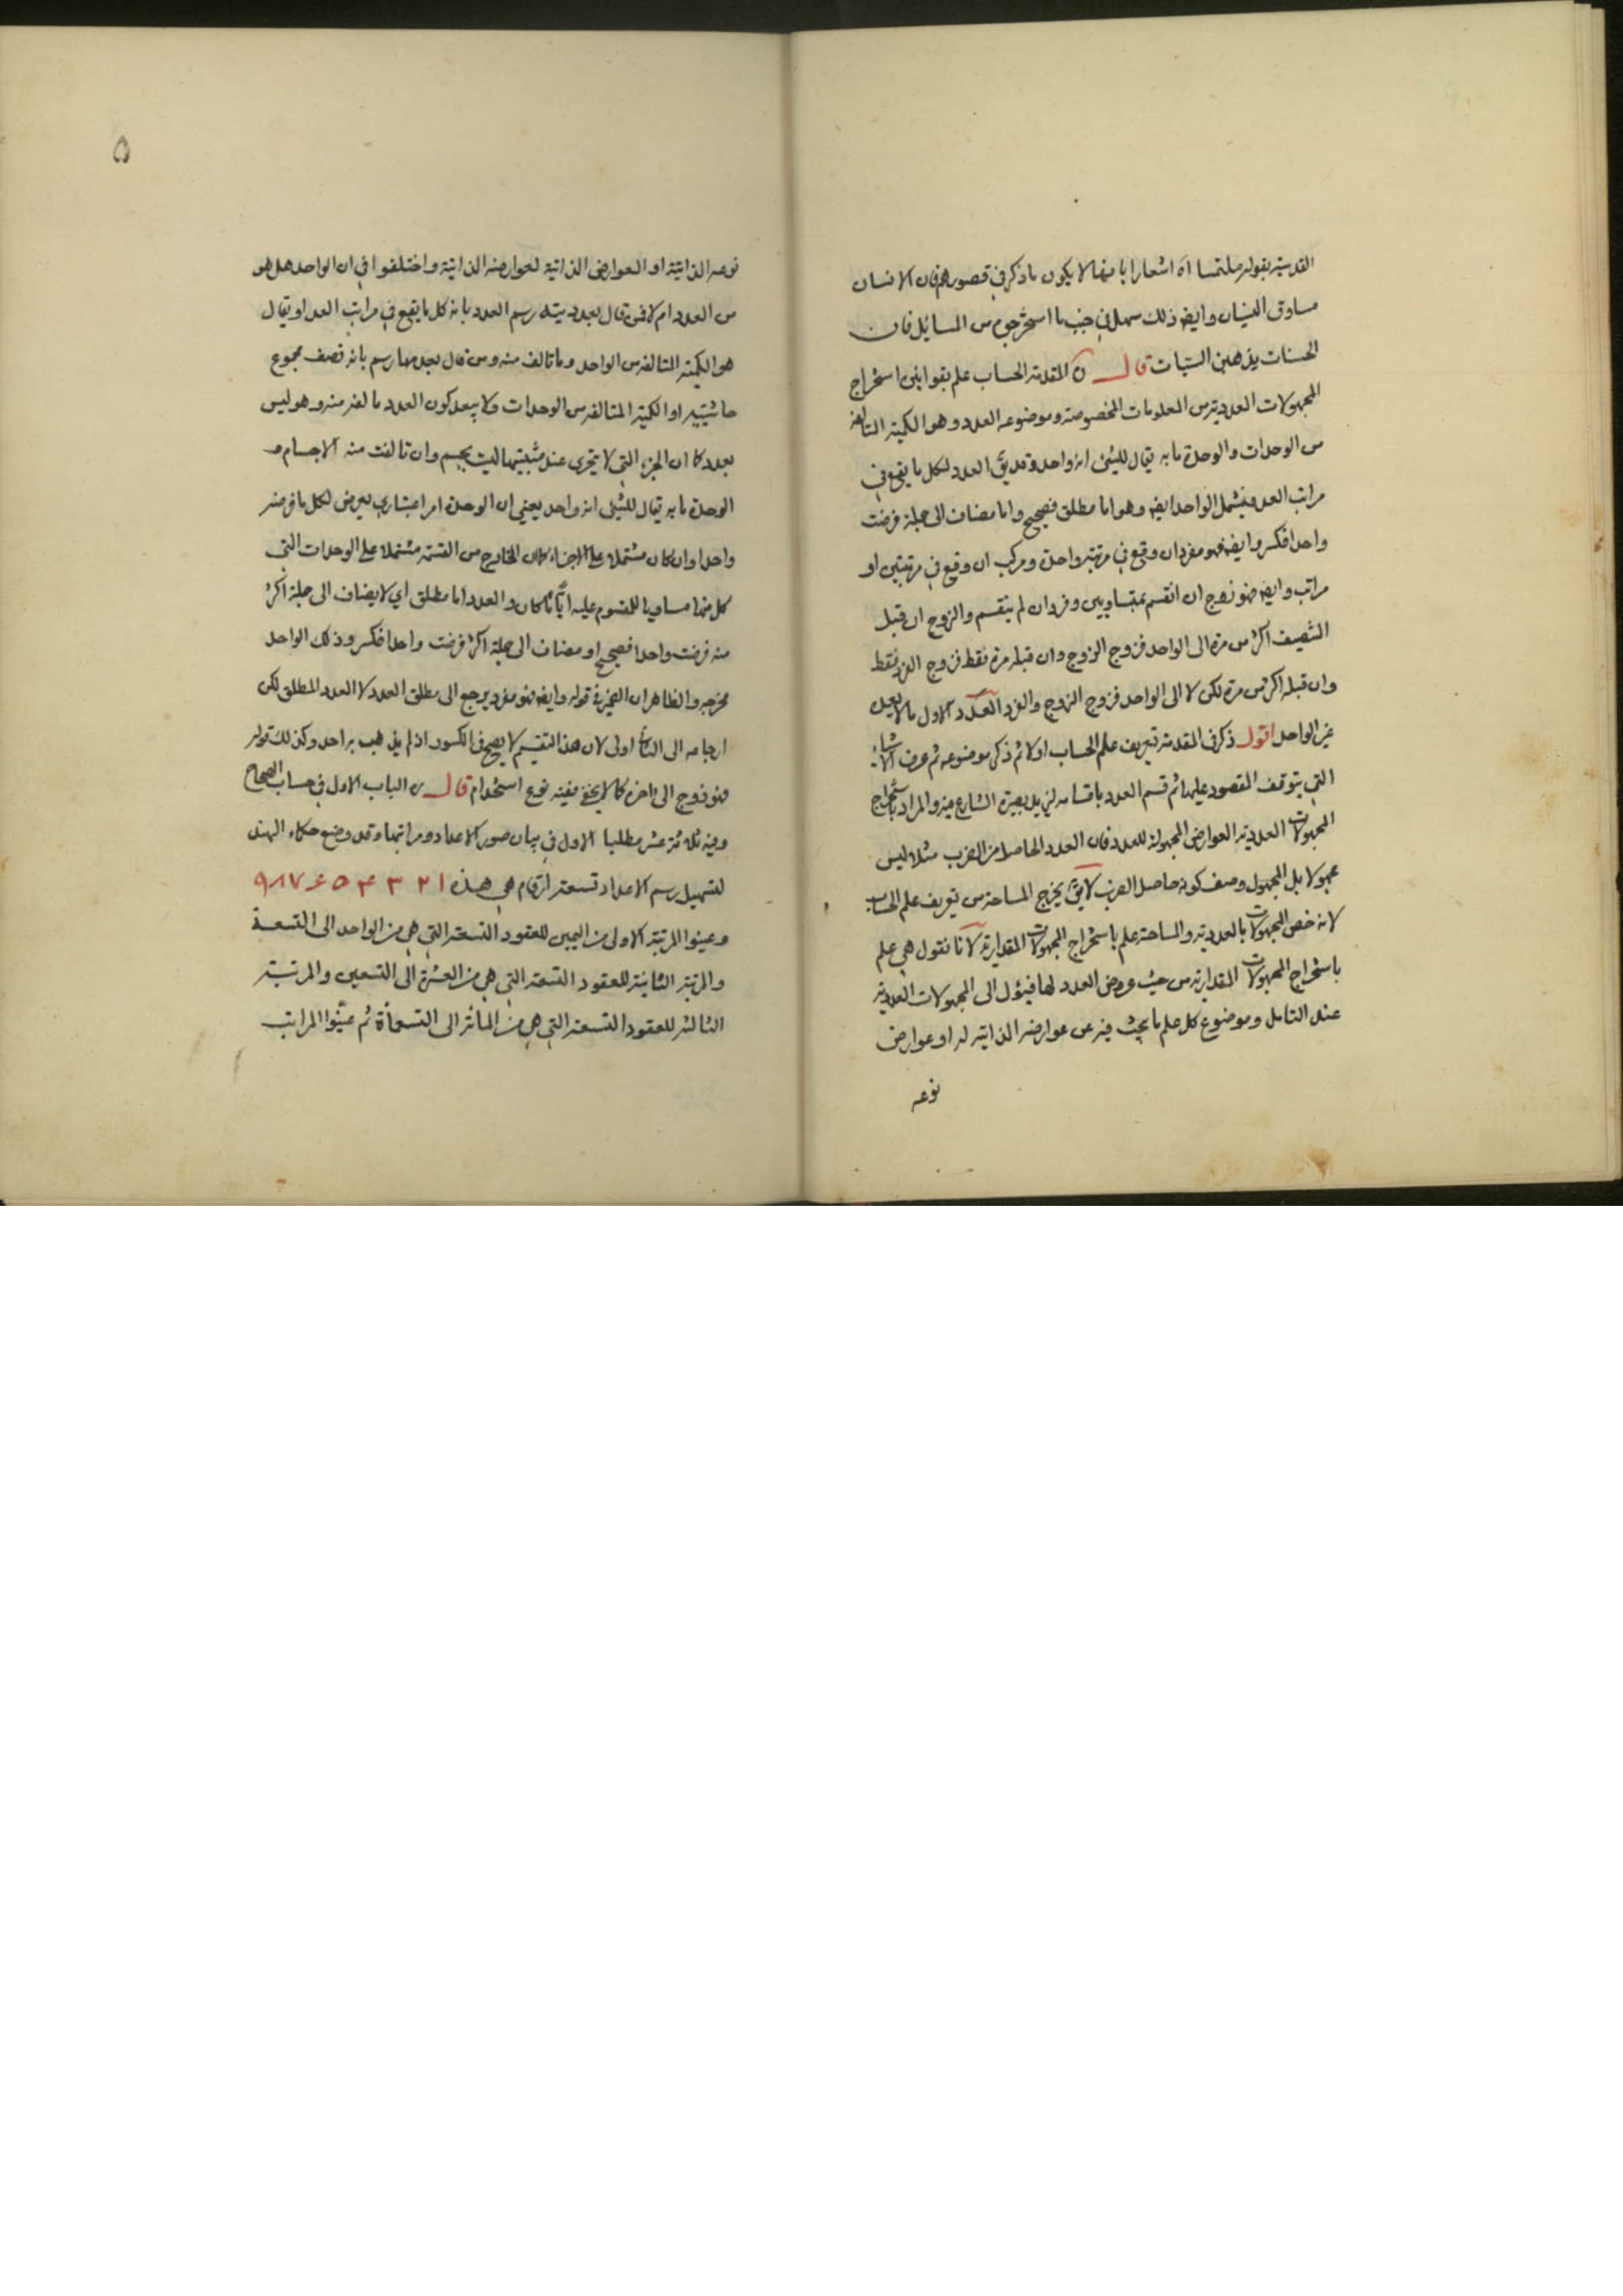 القدسية بقوله ملتمسا اه اشعارا بانها لا يكون ما ذكر في قصورهم فان الانسان
مساوق النسيان وايضا ذلك سهل في جنب ما استخرجوه من المسائل فان
الحسنات يذهبن السيئات قال المقدمة الحساب علم بقوانين استخراج
المجهولات العددية من المعلومات المخصوصة وموضوعه العدد وهو الكمية المتالفة
من الوحدات والوحدة ما به يقال للشئ انه واحد وقد يق العدد لكل ما يقع في
مراتب العد فيشمل الواحد ايضا وهو اما مطلق فصحيح واما مضاف الى جملة فرضت
واحدا فكسر وايضا فهو مفرد ان وقع في مرتبة واحدة ومركب ان وقع في مرتبتين او
مراتب وايضا فهو زوج ان انقسم بمتساويين وفرد ان لم ينقسم والزوج ان قبل
التنصيف اكثر من مرة الى الواحد فزوج الزوج وان قبله مرة فقط فزوج الفرد فقط
وان قبله اكثر من مرة لكن لا الى الواحد فزوج الزوج والفرد العدد الاول ما لا يعده
غير الواحد اقول ذكر في المقدمة تعريف علم الحساب اولا ثم ذكر موضوعه ثم عرف
التي يتوقف المقصود عليها ثم قسم العدد باقسامه ليزيد بصيرة الشارع فيه والمراد باستخراج
المجهولات العددية العوارض المجهولة للعدد فان العدد الحاصل من الضرب مثلا ليس
مجهولا بل المجهول وصف كونه حاصل الضرب لا يق يخرج المساحة من تعريف علم الحساب
لانه خص المجهولات بالعددية والمساحة علم باستخراج المجهولات المقدارية لانا نقول هي علم
باستخراج المجهولات المقدارية من حيث عروض العدد لها فيؤل الى المجهولات العددية
عند التامل وموضوع كل علم ما يبحث فيه عن عوارضه الذاتية له او عوارض
نوعه
۵
نوعه الذاتية او العوارض الذاتية لعوارضه الذاتية واختلفوا في ان الواحد هل هو
من العدد ام لا فمن قال بعدديته رسم العدد بانه كل ما يقع في مراتب العد او يقال
هو الكمية المتالفة من الواحد وما تالف منه ومن قال بعدمها رسم بانه نصف مجموع
حاشيتيه او الكمية المتالفة من الوحدات ولا يبعد كون العدد ما لفه منه وهو ليس
بعدد كما ان الجزء التي لا يتجزى عند مثبتيها ليست بجسم وان تالفت منه الاجسام و
الوحدة ما به يقال للشئ انه واحد يعني ان الوحدة امر اعتباري يعرض لكل ما فرضه
واحدا وان كان مشتملا على الاجزاء كان الخارج من القسمة مشتملا على الوحدات التي
كل منها مساويا للمقسوم عليه ايا ما كان والعدد اما مطلق اي لا يضاف الى جملة اكثر
منه فرضت واحدا فصحيح او مضاف الى جملة اكثر فرضت واحدا فكسر وذلك الواحد
مخرجه والظاهر ان الضمير في قوله وايضا فهو مفرد يرجع الى مطلق العدد لا العدد المطلق لكن
ارجاعه الى الثاني اولى لان هذا التقسيم لا يصح في الكسور اذ لم يذهب به احد وكذلك قوله
فهو زوج الى اخره كما لا يخفى ففيه نوع استخدام قال الباب الاول في حساب الصحاح
وفيه ثلثة عشر مطلبا الاول في بيان صور الاعداد ومراتبها وقد وضع حكماء الهند
لتسهيل رسم الاعداد تسعة ارقام هي هذه ۱ ۲ ۳ ۴ ۵ ۶ ۷ ۸ ۹
وعينوا المرتبة الاولى من اليمين للعقود التسعة التي هي من الواحد الى التسعة
والمرتبة الثانية للعقود التسعة التي هي من العشرة الى التسعين والمرتبة
الثالثة للعقود التسعة التي هي من المائة الى التسعمأة ثم عينوا المراتب